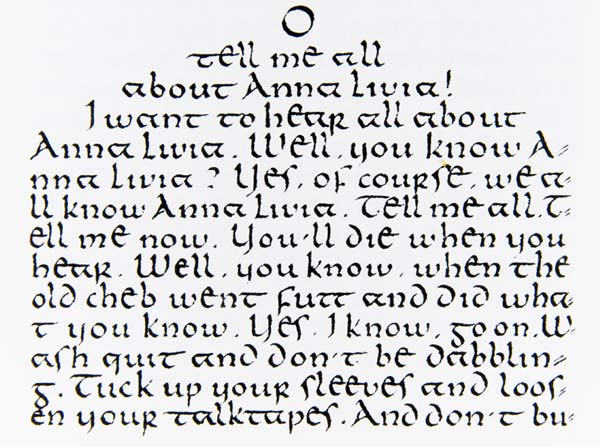 O
tell me all
about Anna Livia!
I want to hear all about
Anna Livia. Well, you know A-
nna Livia? Yes, of course, we a-
ll know Anna Livia. Tell me all. T-
ell me now. You'll die when you
hear. Well, you know, when the
old cheb went futt and did wha-
t you know. Yes, I know, go on. W-
ash quit and don't be dabblin-
g. Tuck up your sleeves and loos-
en your talktapes. And don't bu-